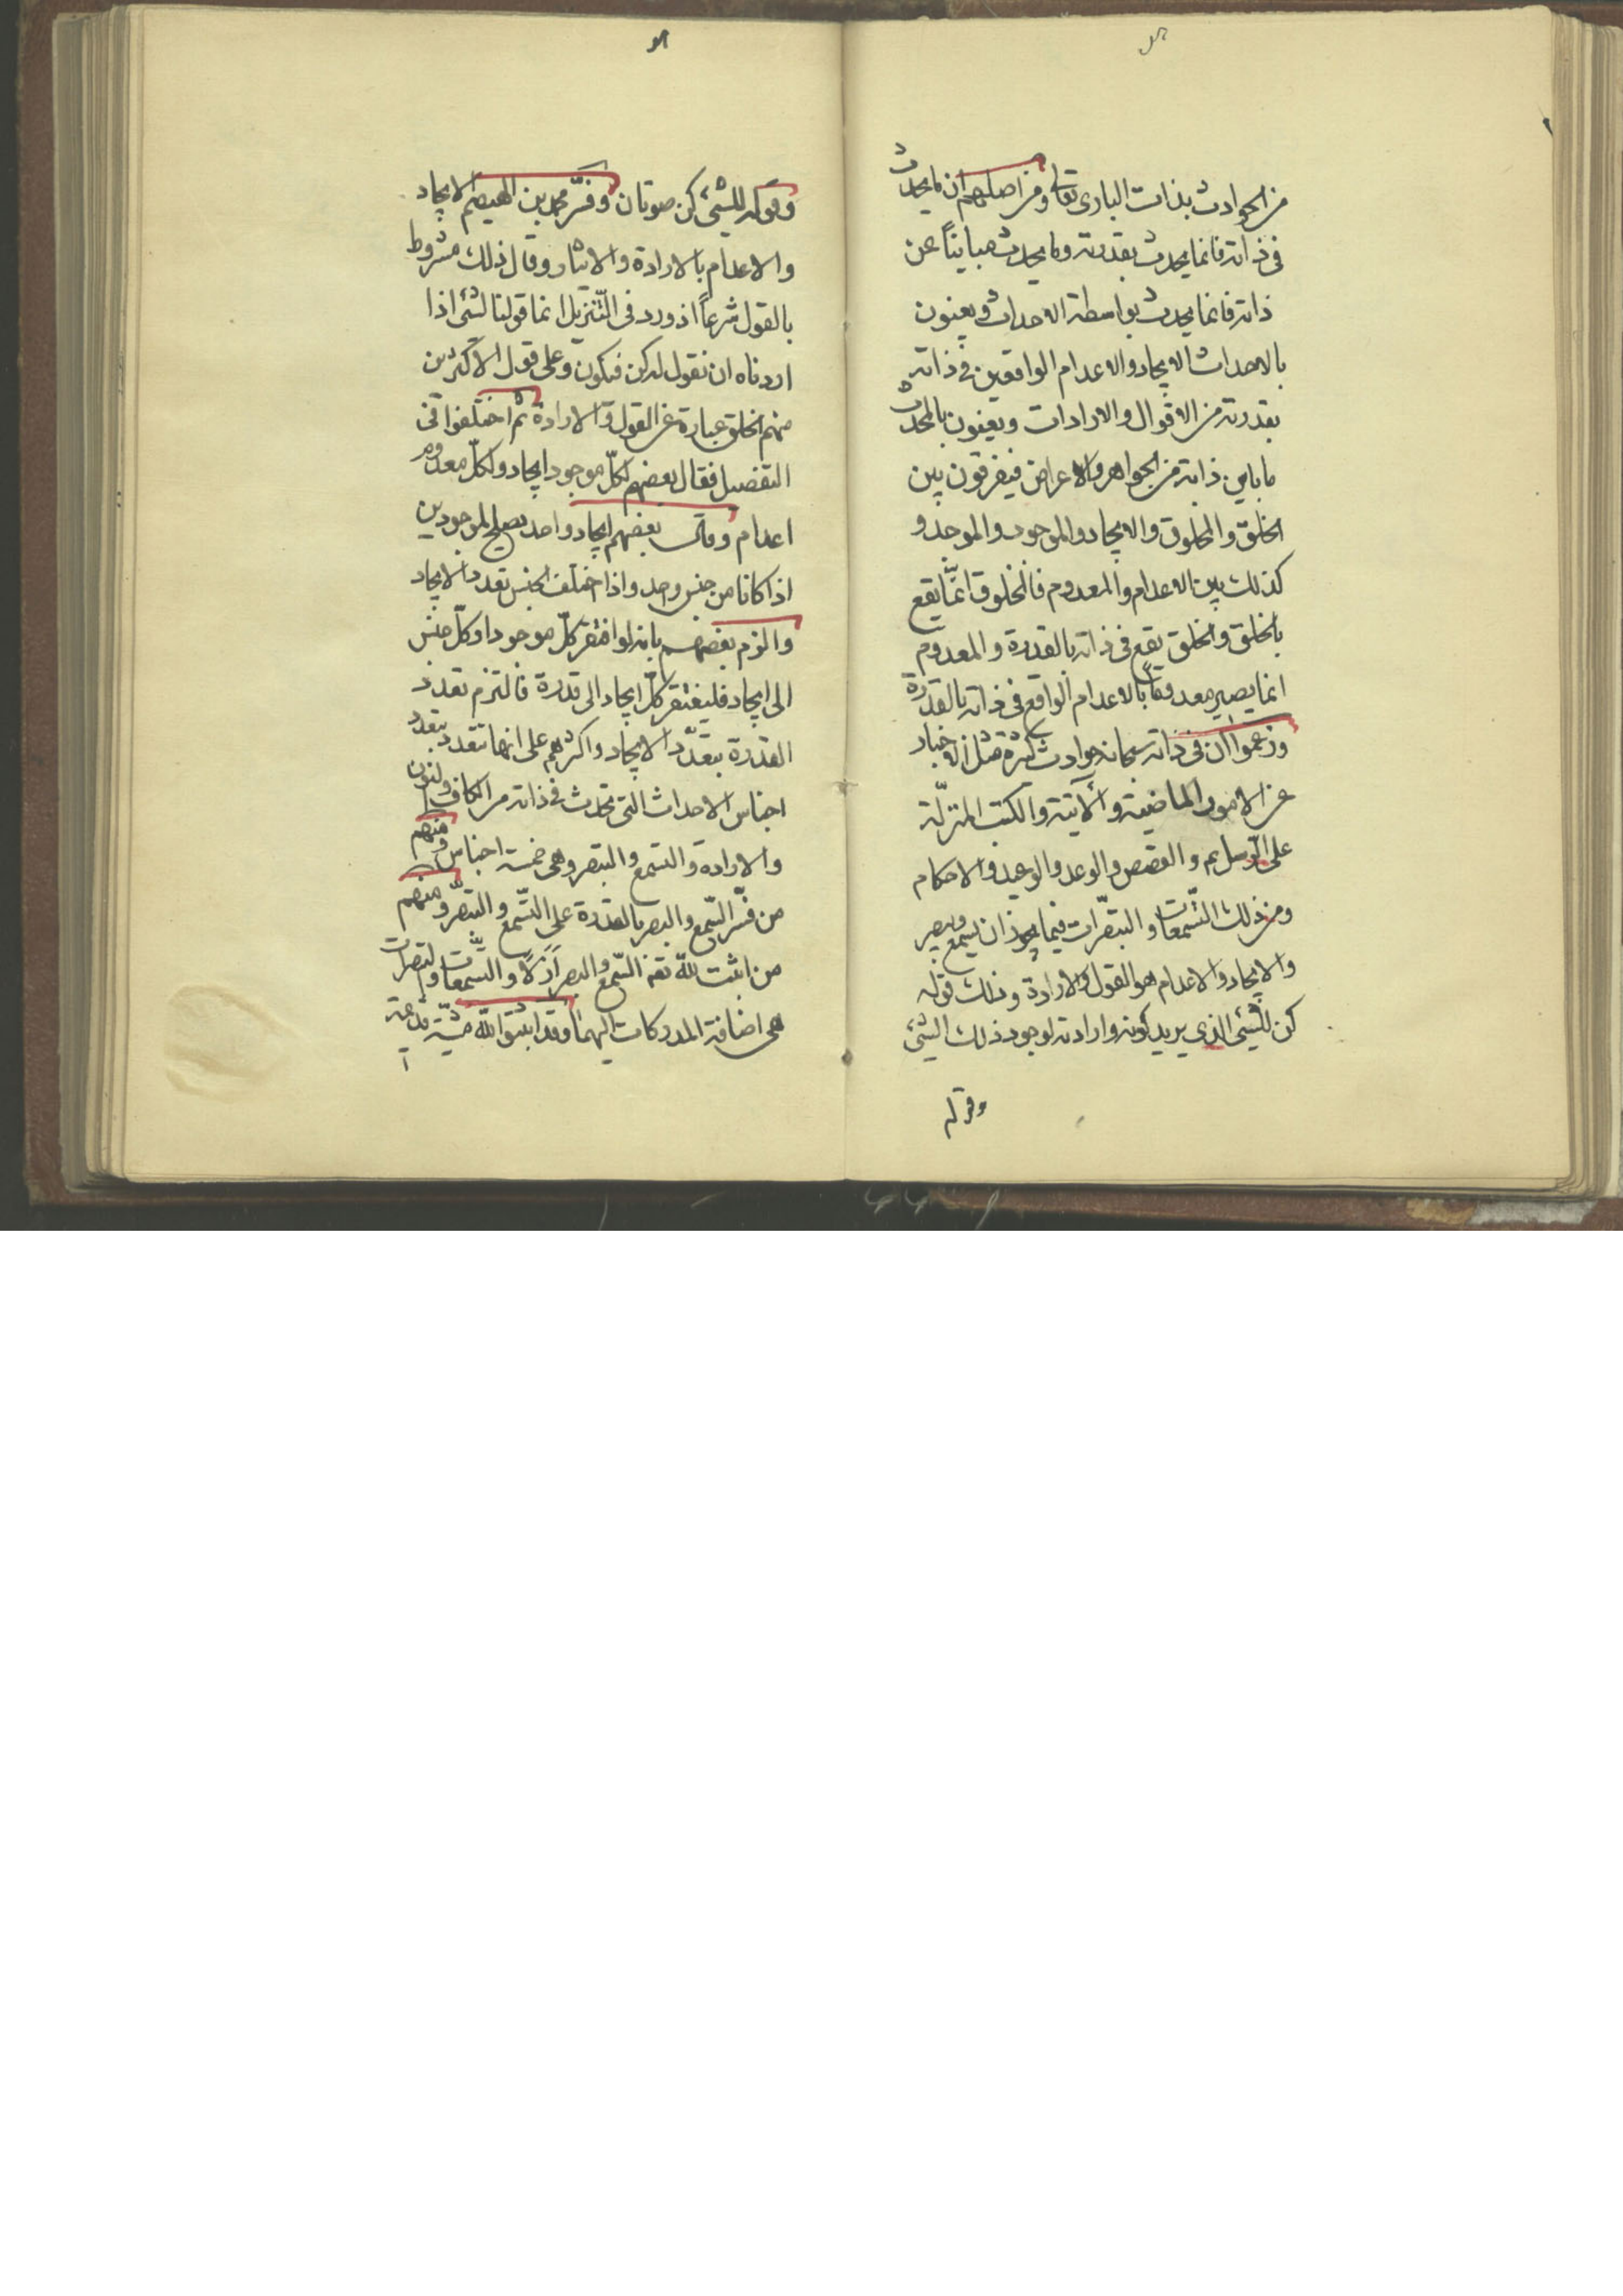 من الحوادث بذات الباري تعالى ومن اصلهم ان ما يحدث
في ذاته فانما يحدث بقدرته وما يحدث مباينا عن
ذاته فانما يحدث بواسطة الاحداث ويعنون
بالاحداث الايجاد والاعدام الواقعين في ذاته
بقدرته من الاقوال والارادات ويعنون بالمحدث
ما باين ذاته من الجواهر والاعراض فيفرقون بين
الخلق والمخلوق والايجاد والموجود والموجد و
كذلك بين الاعدام والمعدوم فالمخلوق انّما يقع
بالخلق والخلق يقع في ذاته بالقدرة والمعدوم
انما يصير معدوماً بالاعدام الواقع في ذاته بالقدرة
وزعموا ان في ذاته سبحانه حوادث كثيرة مثل الاخبار
عن الامور الماضية والآتية والكتب المنزلة
على الرّسل عم والقصص والوعد والوعيد والاحكام
ومن ذلك التسّمعات والتبصّرات فيما يجوز ان يسمع ويبصر
والايجاد والاعدام هو القول والارادة وذلك قوله
كن للشئ الذي يريد كونه وارادته لوجود ذلك الشئ
وقوله
وقوله للشئ كن صوتان وفسّر محمد بن الهيصم الايجاد
والاعدام بالارادة والايثار وقال ذلك مشروط
بالقول شرعاً اذ ورد في التّنزيل انما قولنا لشئ اذا
اردناه ان نقول له كن فيكون وعلى قول الاكثرين
منهم الخلق عبارة عن القول والارادة ثم اختلفوا في
التفصيل فقال بعضهم لكلّ موجود ايجاد ولكلّ معدوم
اعدام وقال بعضهم ايجاد واحد يصلح لموجودين
اذا كانا من جنس واحد واذا اختلف الجنس تعدد الايجاد
والزم بعضهم بانه لو افتقر كلّ موجود او كلّ جنس
الى ايجاد فليفتقر كلّ ايجاد الى قدرة فالتزم تعدد
القدرة بتعدّد الايجاد واكثرهم على انها تتعدد بتعدد
اجناس الاحداث التي تحدث في ذاته من الكاف والنون
والارادة والتسمع والتبصر وهي خمسة اجناس ومنهم
من فسّر السّمع والبصر بالقدرة على التسّمع والتبصّر ومنهم
من اثبت لله تعه السّمع والبصر ازلًا والتسمعات والتبصرات
هي اضافة المدركات اليهما وقد اثبتوا لله مشيّة قديمة